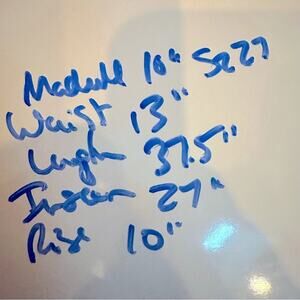 Madewell 10" Sz 27
Waist 13"
Length 37.5"
Inseam 27"
Rise 10"